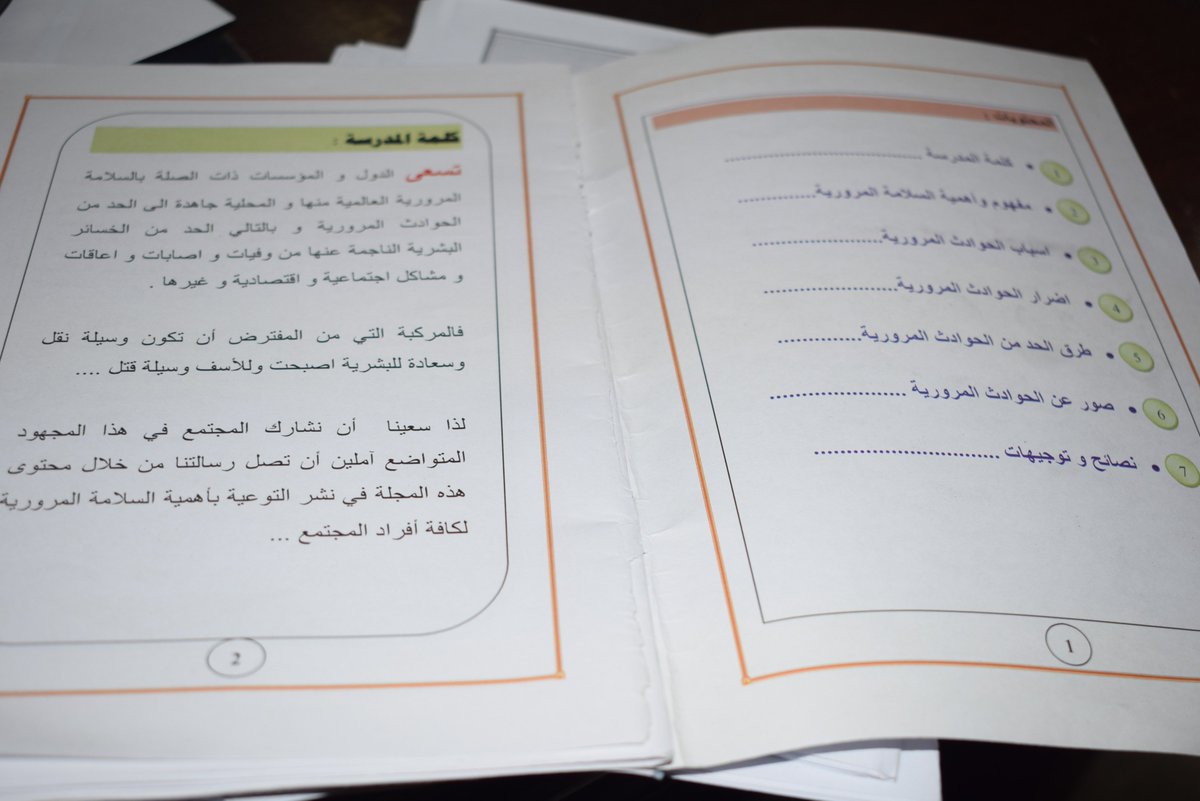 المحتويات :
1 • كلمة المدرسة ........................................
2 • مفهوم وأهمية السلامة المرورية................
3 • اسباب الحوادث المرورية..........................
4 • اضرار الحوادث المرورية..........................
5 • طرق الحد من الحوادث المرورية................
6 • صور عن الحوادث المرورية ........................
7 • نصائح و توجيهات ................................
1
كلمة المدرسة :
تسعى الدول و المؤسسات ذات الصلة بالسلامة
المرورية العالمية منها و المحلية جاهدة الى الحد من
الحوادث المرورية و بالتالي الحد من الخسائر
البشرية الناجمة عنها من وفيات و اصابات و اعاقات
و مشاكل اجتماعية و اقتصادية و غيرها .
فالمركبة التي من المفترض أن تكون وسيلة نقل
وسعادة للبشرية اصبحت وللأسف وسيلة قتل ....
لذا سعينا أن نشارك المجتمع في هذا المجهود
المتواضع آملين أن تصل رسالتنا من خلال محتوى
هذه المجلة في نشر التوعية بأهمية السلامة المرورية
لكافة أفراد المجتمع ...
2